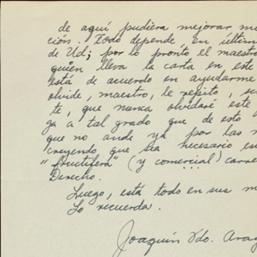 de aquí pudiera mejorar m
ción. Todo depende, en últim
de Ud; por lo pronto el maestr
quien lleva la carta en este
está de acuerdo en ayudarme
olvide, maestro, le repito, su
te, que nunca olvidaré este
ga a tal grado que de esto
que no ande ya por las
creyendo que sea necesario es
"fructífera" (y comercial) carre
Derecho.
Luego, está todo en sus m
Lo recuerda.
Joaquín Ado. Arag